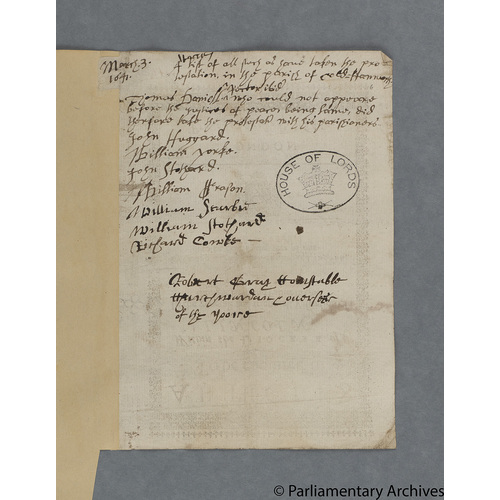 March 3.
1641.
A list of all such as have taken the pro
testation, in the parish of Cold
Rector ibid
Thomas Daniell who could not appeare
before the justices of peace being lame, did
therfore take the protestat: with his parishioners
John Huggard.
William Yorke.
John Stothard.
William
William
William Stothard
Richard Cowle
Robert Constable
Churchwarden & overseer
of the Poore
HOUSE OF LORDS
© Parliamentary Archives